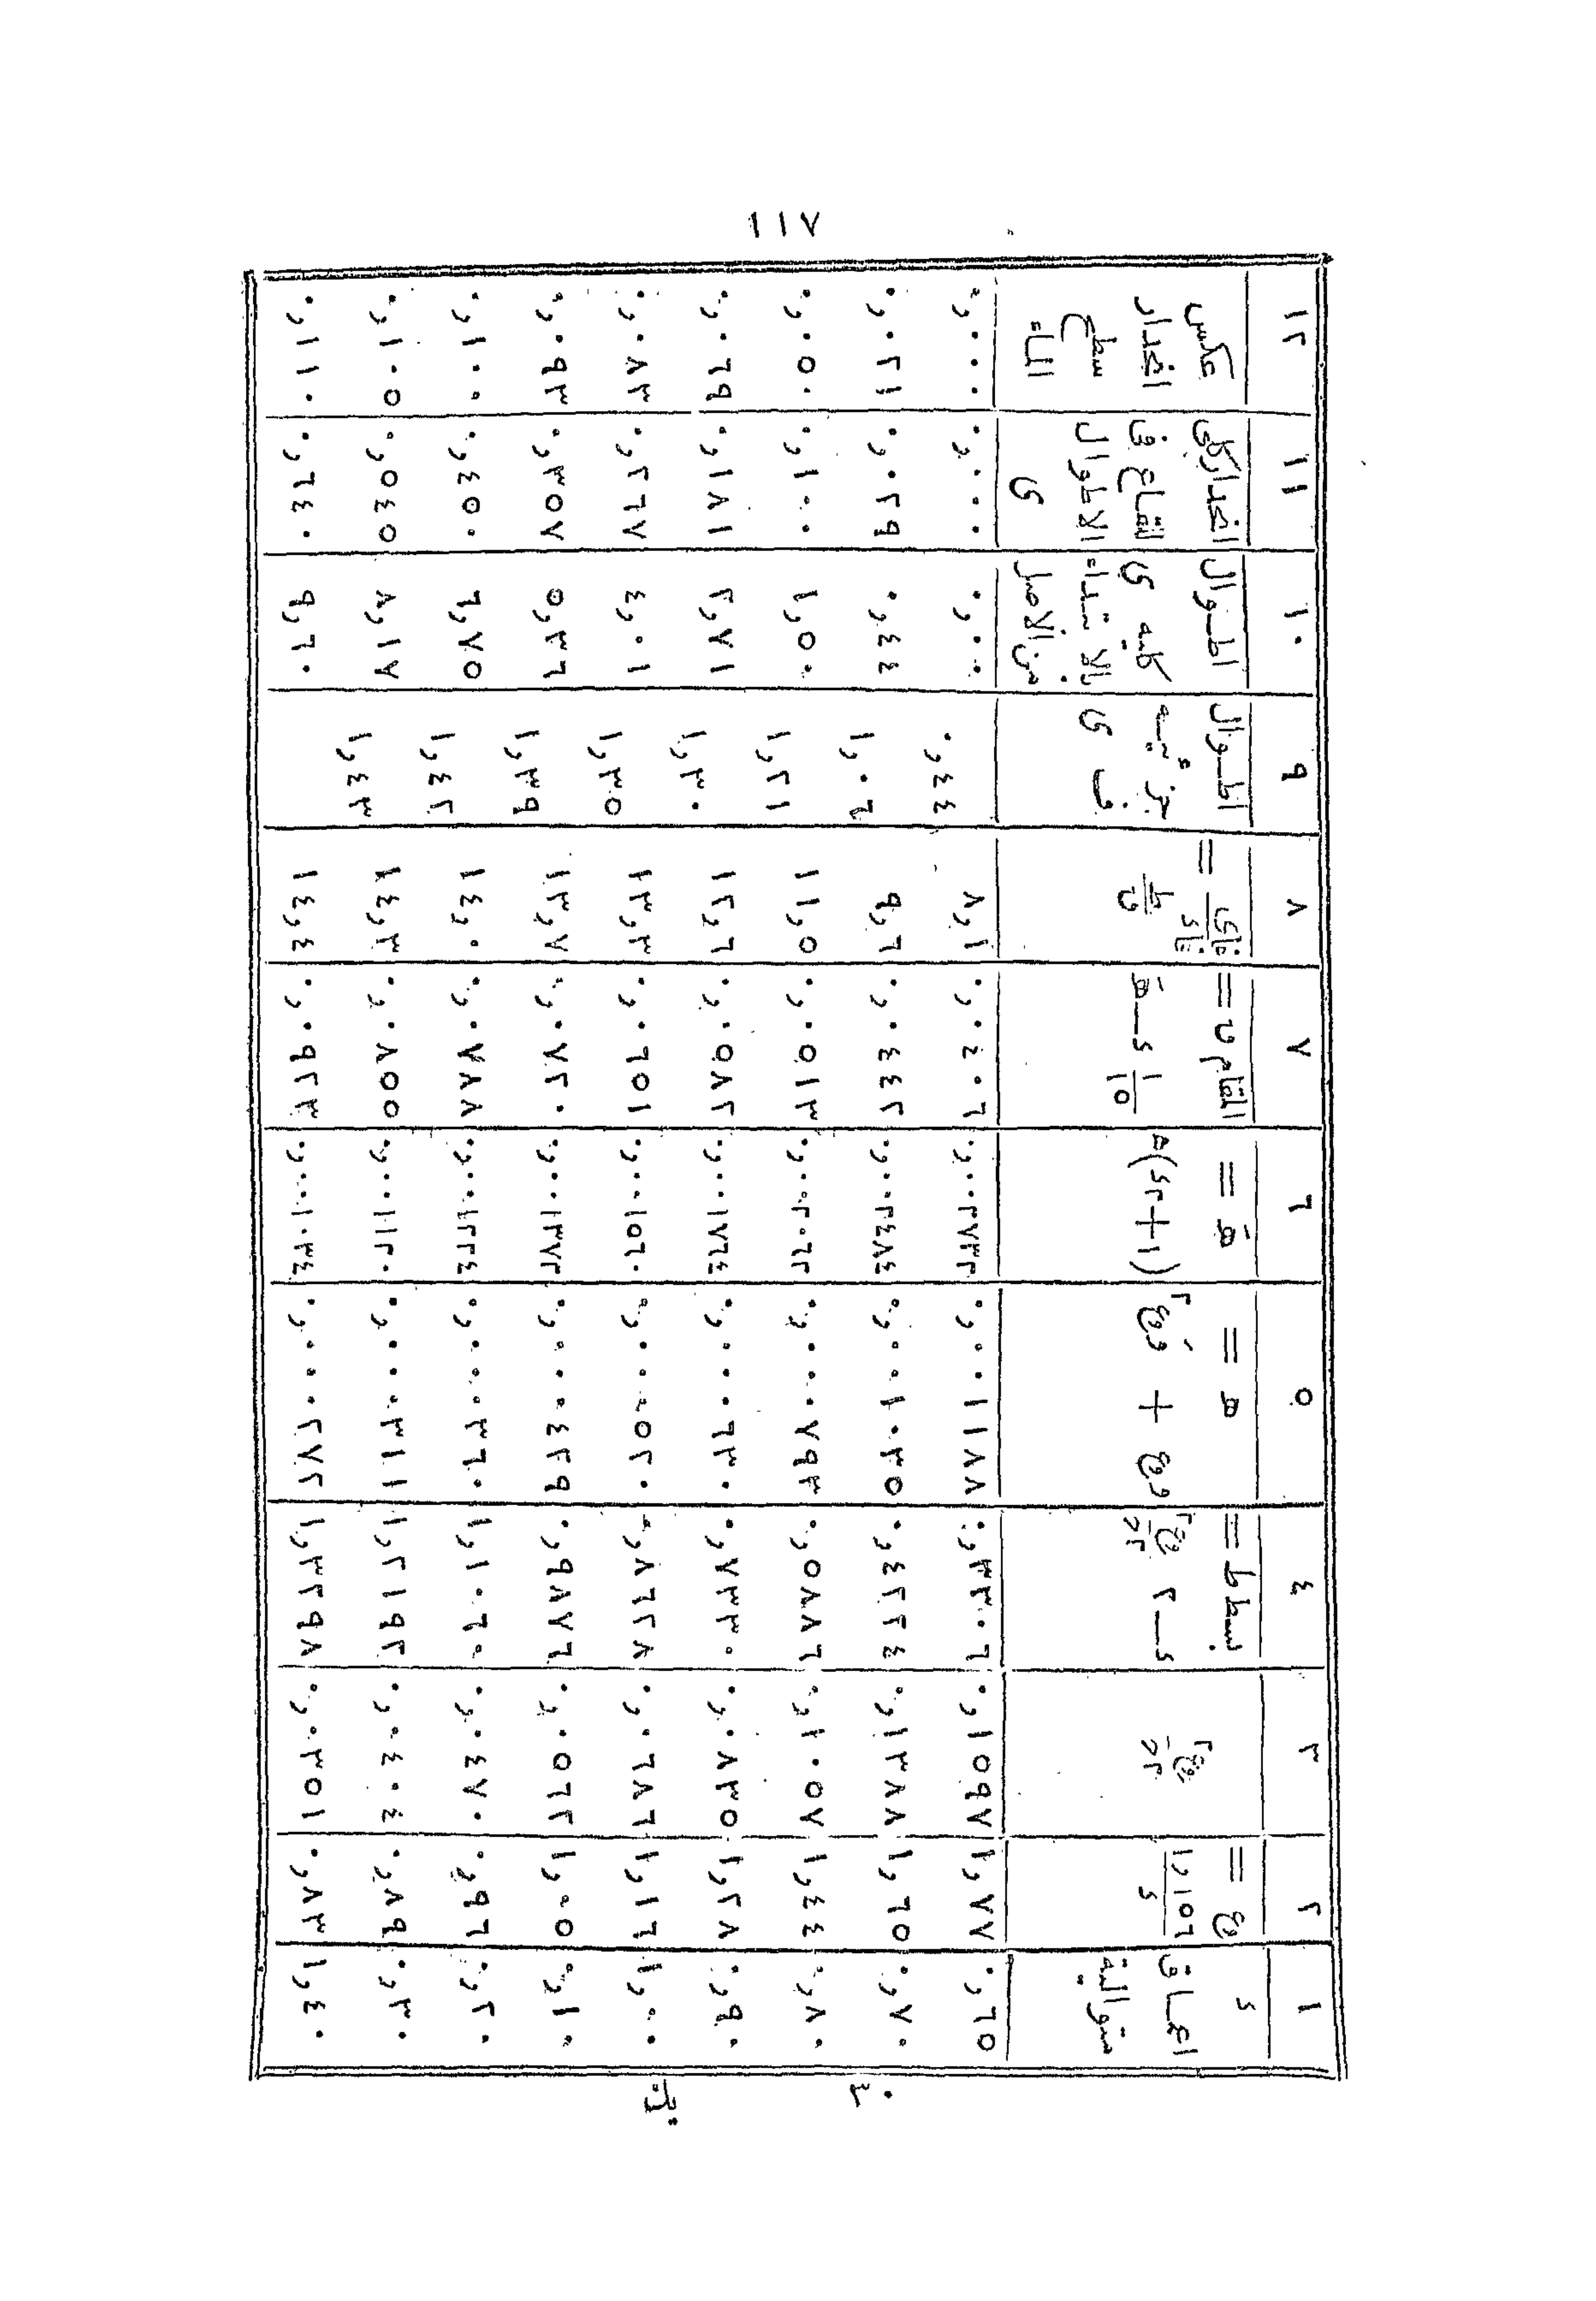 ١١٧
١ ٢ ٣ ٤ ٥ ٦ ٧ ٨ ٩ ١٠ ١١ ١٢
اعماق متوالية
المقام
اطوال جزئيه ف ى
اطوال كليه ى بالابتداء من الاصل
انحدار كلى للقاع فى الاطوال ى
عكس انحدار سطح الماء
٠,٦٥ ١,٧٧ ٠,١٥٩٧ ٠,٣٣٠٠٦ ٠,٠٠١١٨٨ ٠,٠٠٢٧٣٢ ٠,٠٤٠٦ ٨,١ ٠,٠٠ ٠,٠٠٠ ٠,٠٠٠
٠,٤٤
٠,٧٠ ١,٦٥ ٠,١٣٨٨ ٠,٤٢٢٤ ٠,٠٠١٠٣٥ ٠,٠٠٢٤٨٤ ٠,٠٤٤٢ ٩,٦ ٠,٤٤ ٠,٠٢٩ ٠,٠٢١
١,٠٦
٠,٨٠ ١,٤٤ ٠,١٠٥٧ ٠,٥٨٨٦ ٠,٠٠٠٧٩٣ ٠,٠٠٢٠٦٢ ٠,٠٥١٣ ١١,٥ ١,٥٠ ٠,١٠٠ ٠,٠٥٠
١,٢١
٠,٩٠ ١,٢٨ ٠,٠٨٣٥ ٠,٧٣٣٠ ٠,٠٠٠٦٣٠ ٠,٠٠١٧٦٤ ٠,٠٥٨٢ ١٢,٦ ٢,٧١ ٠,١٨١ ٠,٠٦٩
١,٣٠
١,٠٠ ١,١٦ ٠,٠٦٨٦ ٠,٨٦٢٨ ٠,٠٠٠٥٢٠ ٠,٠٠١٥٦٠ ٠,٠٦٥١ ١٣,٣ ٤,٠١ ٠,٢٦٧ ٠,٠٨٣
١,٣٥
١,١٠ ١,٠٥ ٠,٠٥٦٢ ٠,٩٨٧٦ ٠,٠٠٠٤٢٩ ٠,٠٠١٣٧٢ ٠,٠٧٢٠ ١٣,٧ ٥,٣٦ ٠,٣٥٧ ٠,٠٩٣
١,٣٩
١,٢٠ ٠,٩٦ ٠,٠٤٧٠ ١,١٠٦٠ ٠,٠٠٠٣٦٠ ٠,٠٠١٢٢٤ ٠,٠٧٨٨ ١٤,٠ ٦,٧٥ ٠,٤٥٠ ٠,١٠٠
١,٤٢
١,٣٠ ٠,٨٩ ٠,٠٤٠٤ ١,٢١٩٢ ٠,٠٠٠٣١١ ٠,٠٠١١٢٠ ٠,٠٨٥٥ ١٤,٣ ٨,١٧ ٠,٥٤٥ ٠,١٠٥
١,٤٣
١,٤٠ ٠,٨٣ ٠,٠٣٥١ ١,٣٢٩٨ ٠,٠٠٠٢٧٢ ٠,٠٠١٠٣٤ ٠,٠٩٢٣ ١٤,٤ ٩,٦٠ ٠,٦٤٠ ٠,١١٠